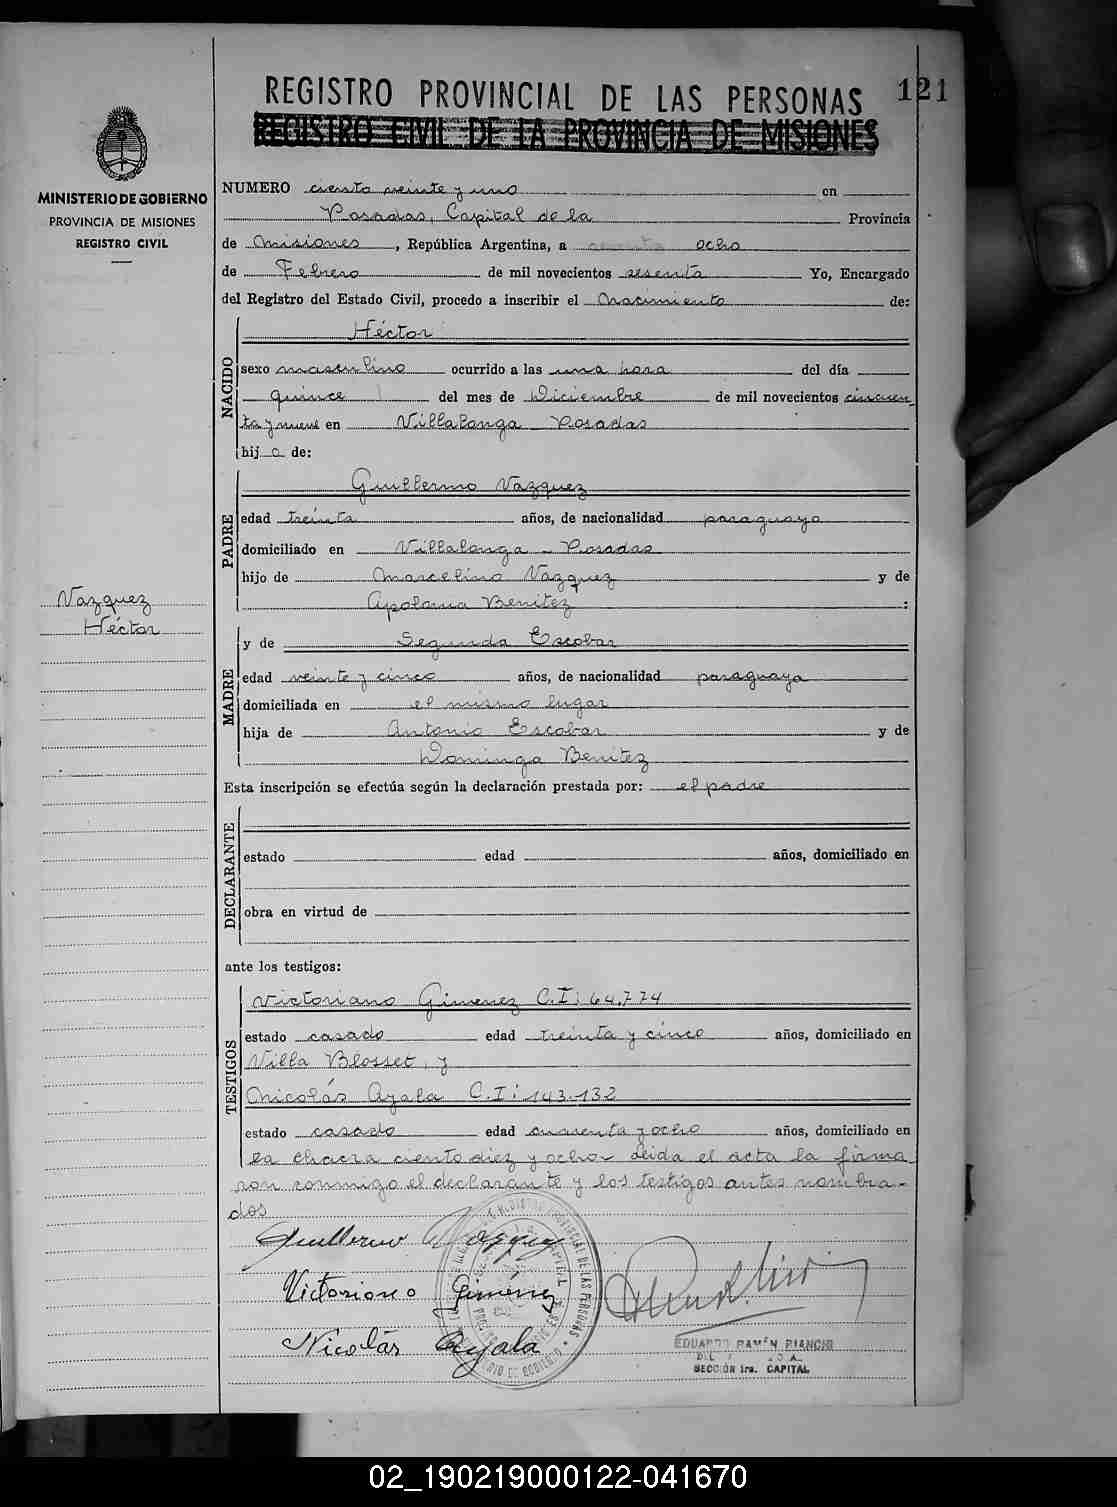 REGISTRO PROVINCIAL DE LAS PERSONAS
121
REGISTRO CIVIL DE LA PROVINCIA DE MISIONES
MINISTERIO DE GOBIERNO
PROVINCIA DE MISIONES
REGISTRO CIVIL
NUMERO ciento veinte y uno en
Posadas, Capital de la Provincia
de Misiones, República Argentina, a ocho
de Febrero de mil novecientos sesenta Yo, Encargado
del Registro del Estado Civil, procedo a inscribir el Nacimiento de:
NACIDO
Héctor
sexo masculino ocurrido a las una hora del día
quince del mes de Diciembre de mil novecientos cincuen
ta y nueve en Villalonga - Posadas
hij o de:
PADRE
Guillermo Vazquez
edad treinta años, de nacionalidad paraguayo
domiciliado en Villalonga - Posadas
hijo de Marcelino Vazquez y de
Benitez :
Vazquez
Héctor
MADRE
y de Segunda Escobar
edad veinte y cinco años, de nacionalidad paraguaya
domiciliada en el mismo lugar
hija de Antonio Escobar y de
Dominga Benitez
Esta inscripción se efectúa según la declaración prestada por: el padre
DECLARANTE
estado edad años, domiciliado en
obra en virtud de
ante los testigos:
TESTIGOS
Victoriano Gimenez C.I: 64.774
estado casado edad treinta y cinco años, domiciliado en
Villa Blosset, y
Nicolás Ayala C.I: 143.132
estado casado edad y ocho años, domiciliado en
la chacra ciento diez y ocho. Leida el acta la firma
ron conmigo el declarante y los testigos antes nombra-
dos
Guillermo Vazquez
Victoriano Gimenez
Nicolás Ayala
EDUARDO RAMÓN BIANCHI
SECCIÓN 1ra. CAPITAL
02_190219000122-041670